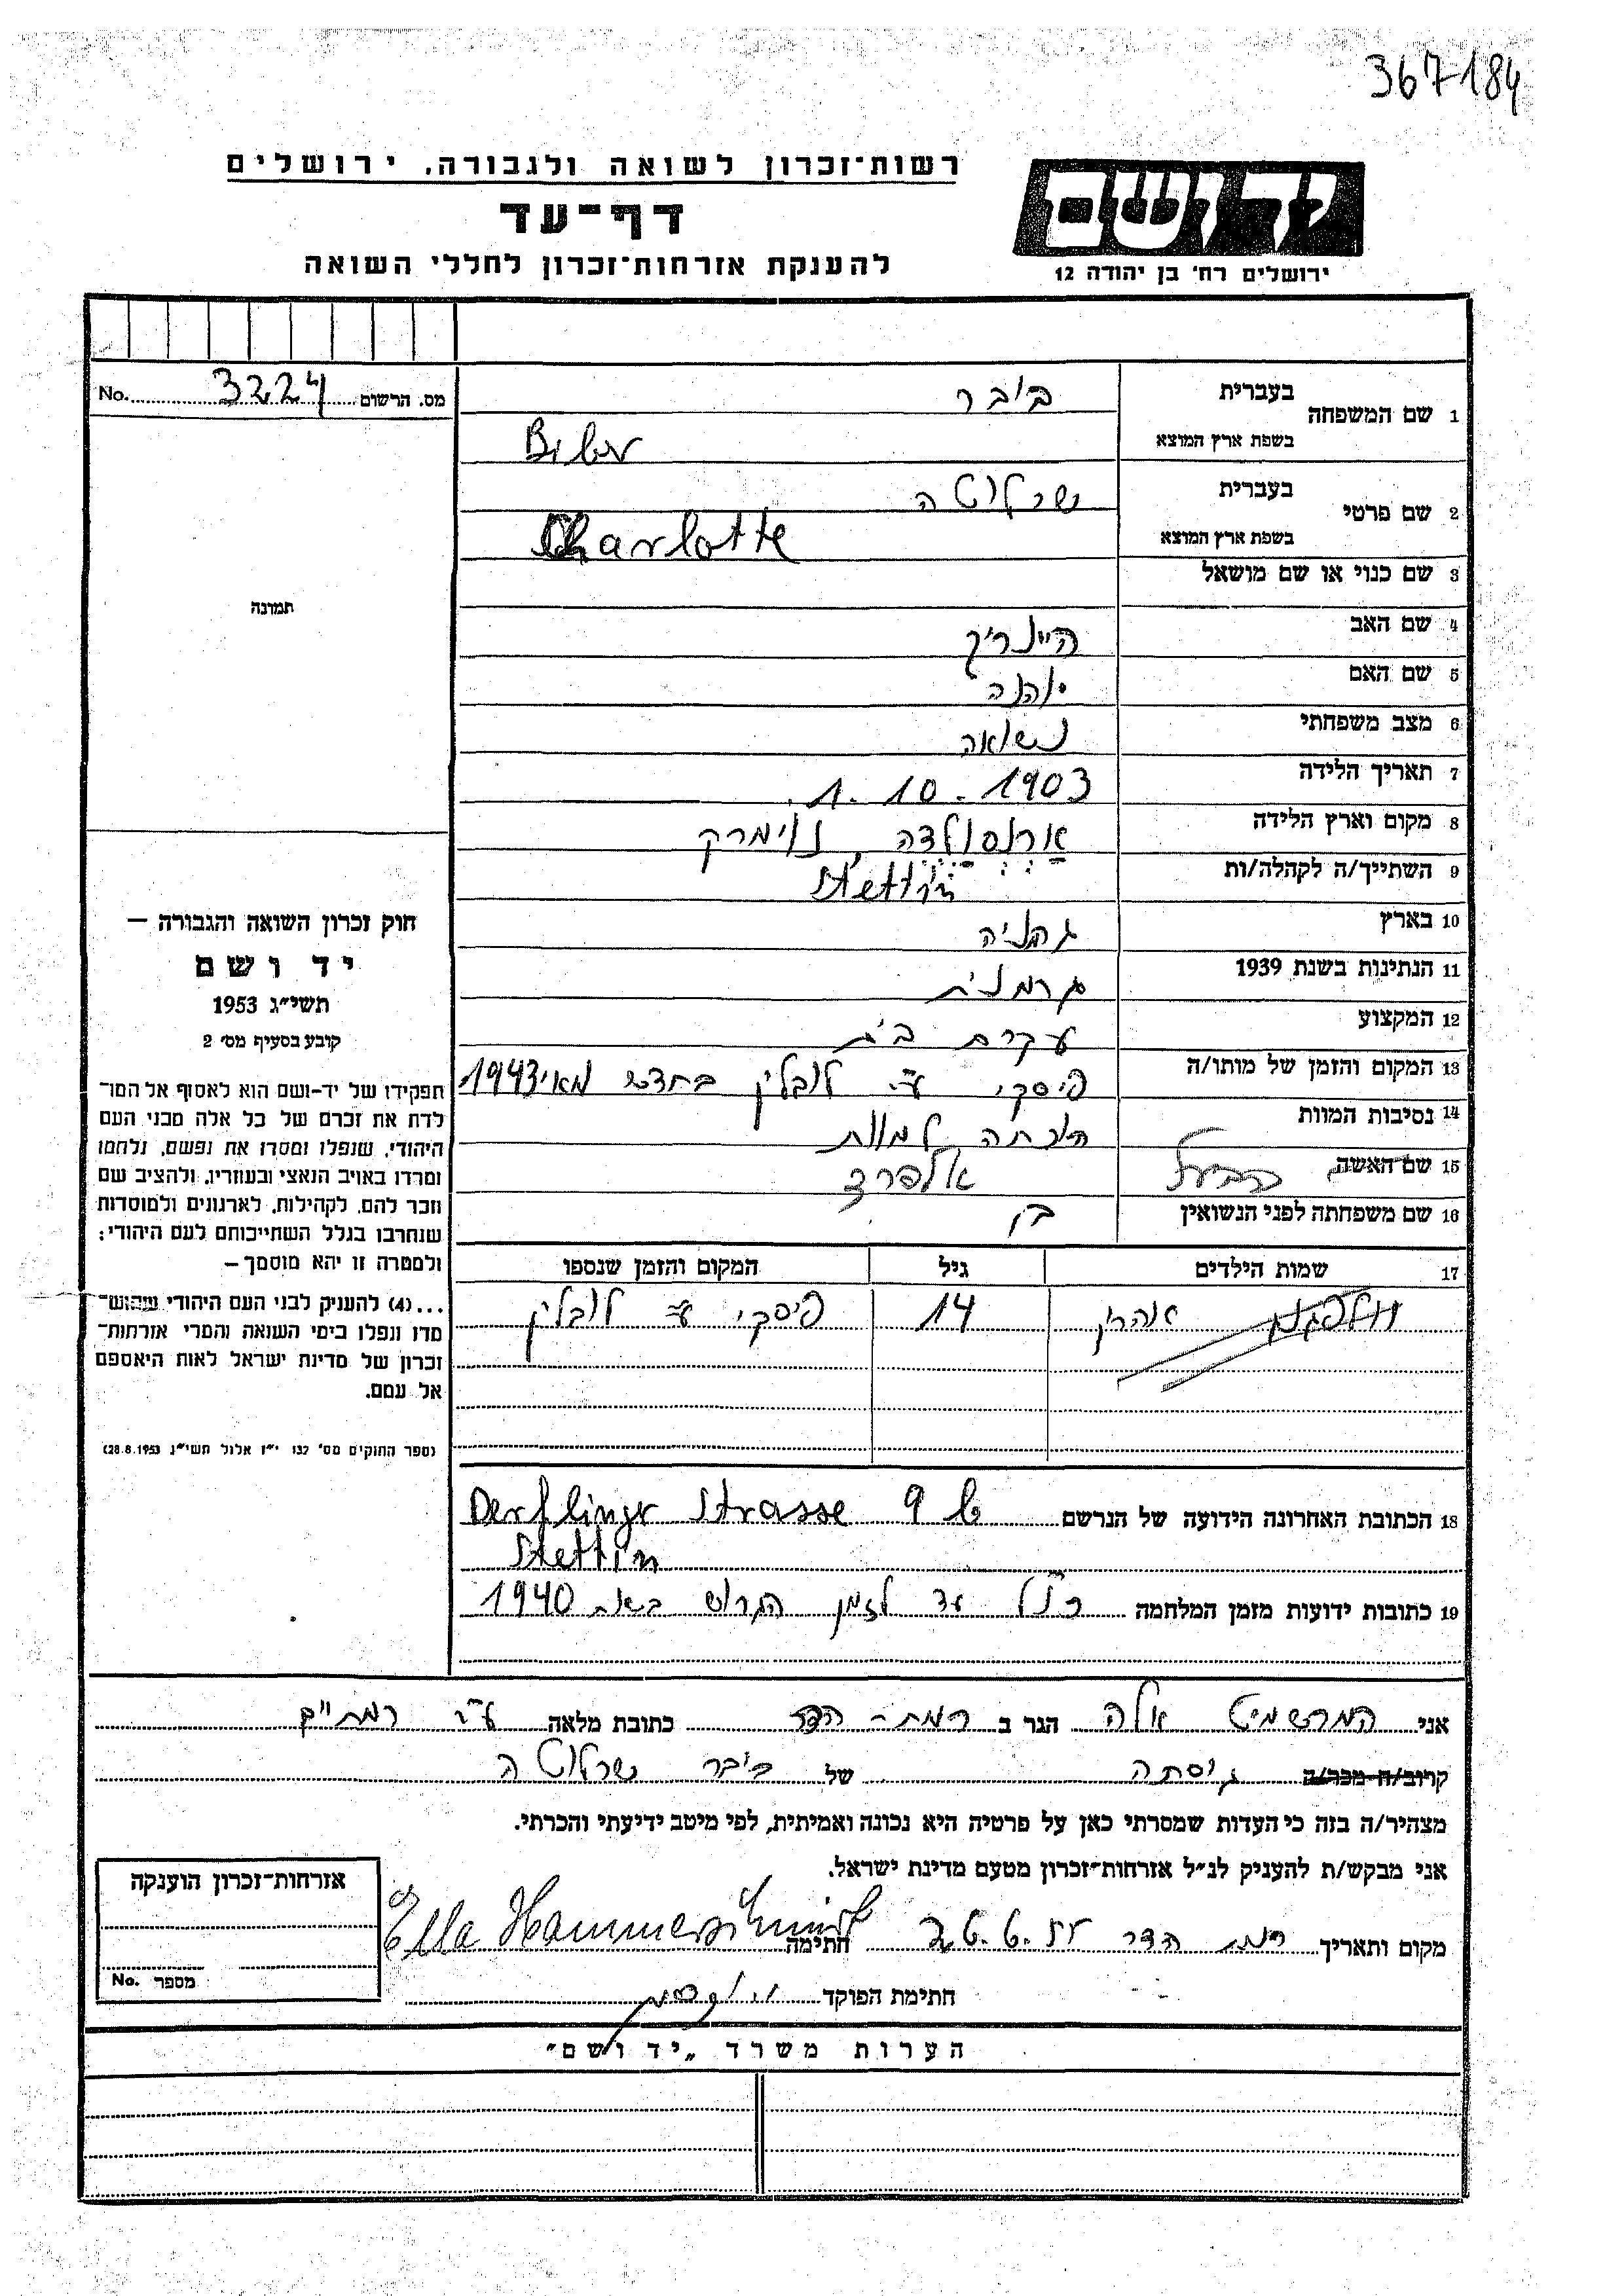 367184
רשות־זכרון לשואה ולגבורה, ירושלים
יד ושם
דף־עד
ירושלים רח׳ בן יהודה 12
להענקת אזרחות־זכרון לחללי השואה
מס. הרשום 3224 No.
1 שם המשפחה
בעברית ביבר
בשפת ארץ המוצא Biber
2 שם פרטי
בעברית שרלוטה
בשפת ארץ המוצא Charlotte
3 שם כנוי או שם מושאל
תמונה
4 שם האב היינריך
5 שם האם יוהנה
6 מצב משפחתי נשואה
7 תאריך הלידה 1.10.1903
8 מקום וארץ הלידה ארנסולדה, נוימרק
9 השתייך/ה לקהלה/ות Stettin
10 בארץ גרמניה
11 הנתינות בשנת 1939 גרמנית
12 המקצוע עקרת בית
13 המקום והזמן של מותו/ה פיסקי ע״י לובלין בחדש מאי 1943
14 נסיבות המוות הוכתה למוות
15 שם האשה הבעל אלפרד
16 שם משפחתה לפני הנשואין
17 שמות הילדים גיל המקום והזמן שנספו
וולפגנג אהרן 14 פיסקי ע״י לובלין
חוק זכרון השואה והגבורה —
יד ושם
תשי״ג 1953
קובע בסעיף מס׳ 2
תפקידו של יד־ושם הוא לאסוף אל המו־
לדת את זכרם של כל אלה מבני העם
היהודי, שנפלו ומסרו את נפשם, נלחמו
ומרדו באויב הנאצי ובעוזריו, ולהציב שם
וזכר להם, לקהילות, לארגונים ולמוסדות
שנחרבו בגלל השתייכותם לעם היהודי;
ולמטרה זו יהא מוסמך —
...(4) להעניק לבני העם היהודי שהוש־
מדו ונפלו בימי השואה והמרי אזרחות־
זכרון של מדינת ישראל לאות היאספם
אל עמם.
(ספר החוקים מס׳ 132 י״ז אלול תשי״ג 28.8.1953)
18 הכתובת האחרונה הידועה של הנרשם Derflinger Strasse 9 b
Stettin
19 כתובות ידועות מזמן המלחמה כנ״ל עד לזמן הגרוש 1940
אני המרשמיט אלה הגר ב רמת־הדר כתובת מלאה ע״י רמתיים
קרוב/ה־מכר/ה גיסתה של ביבר שרלוטה
מצהיר/ה בזה כי העדות שמסרתי כאן על פרטיה היא נכונה ואמיתית, לפי מיטב ידיעתי והכרתי.
אני מבקש/ת להעניק לנ״ל אזרחות־זכרון מטעם מדינת ישראל.
מקום ותאריך רמת הדר חתימה Ella Hammerschmidt
חתימת הפוקד
אזרחות־זכרון הוענקה
מספר No.
הערות משרד „יד ושם״